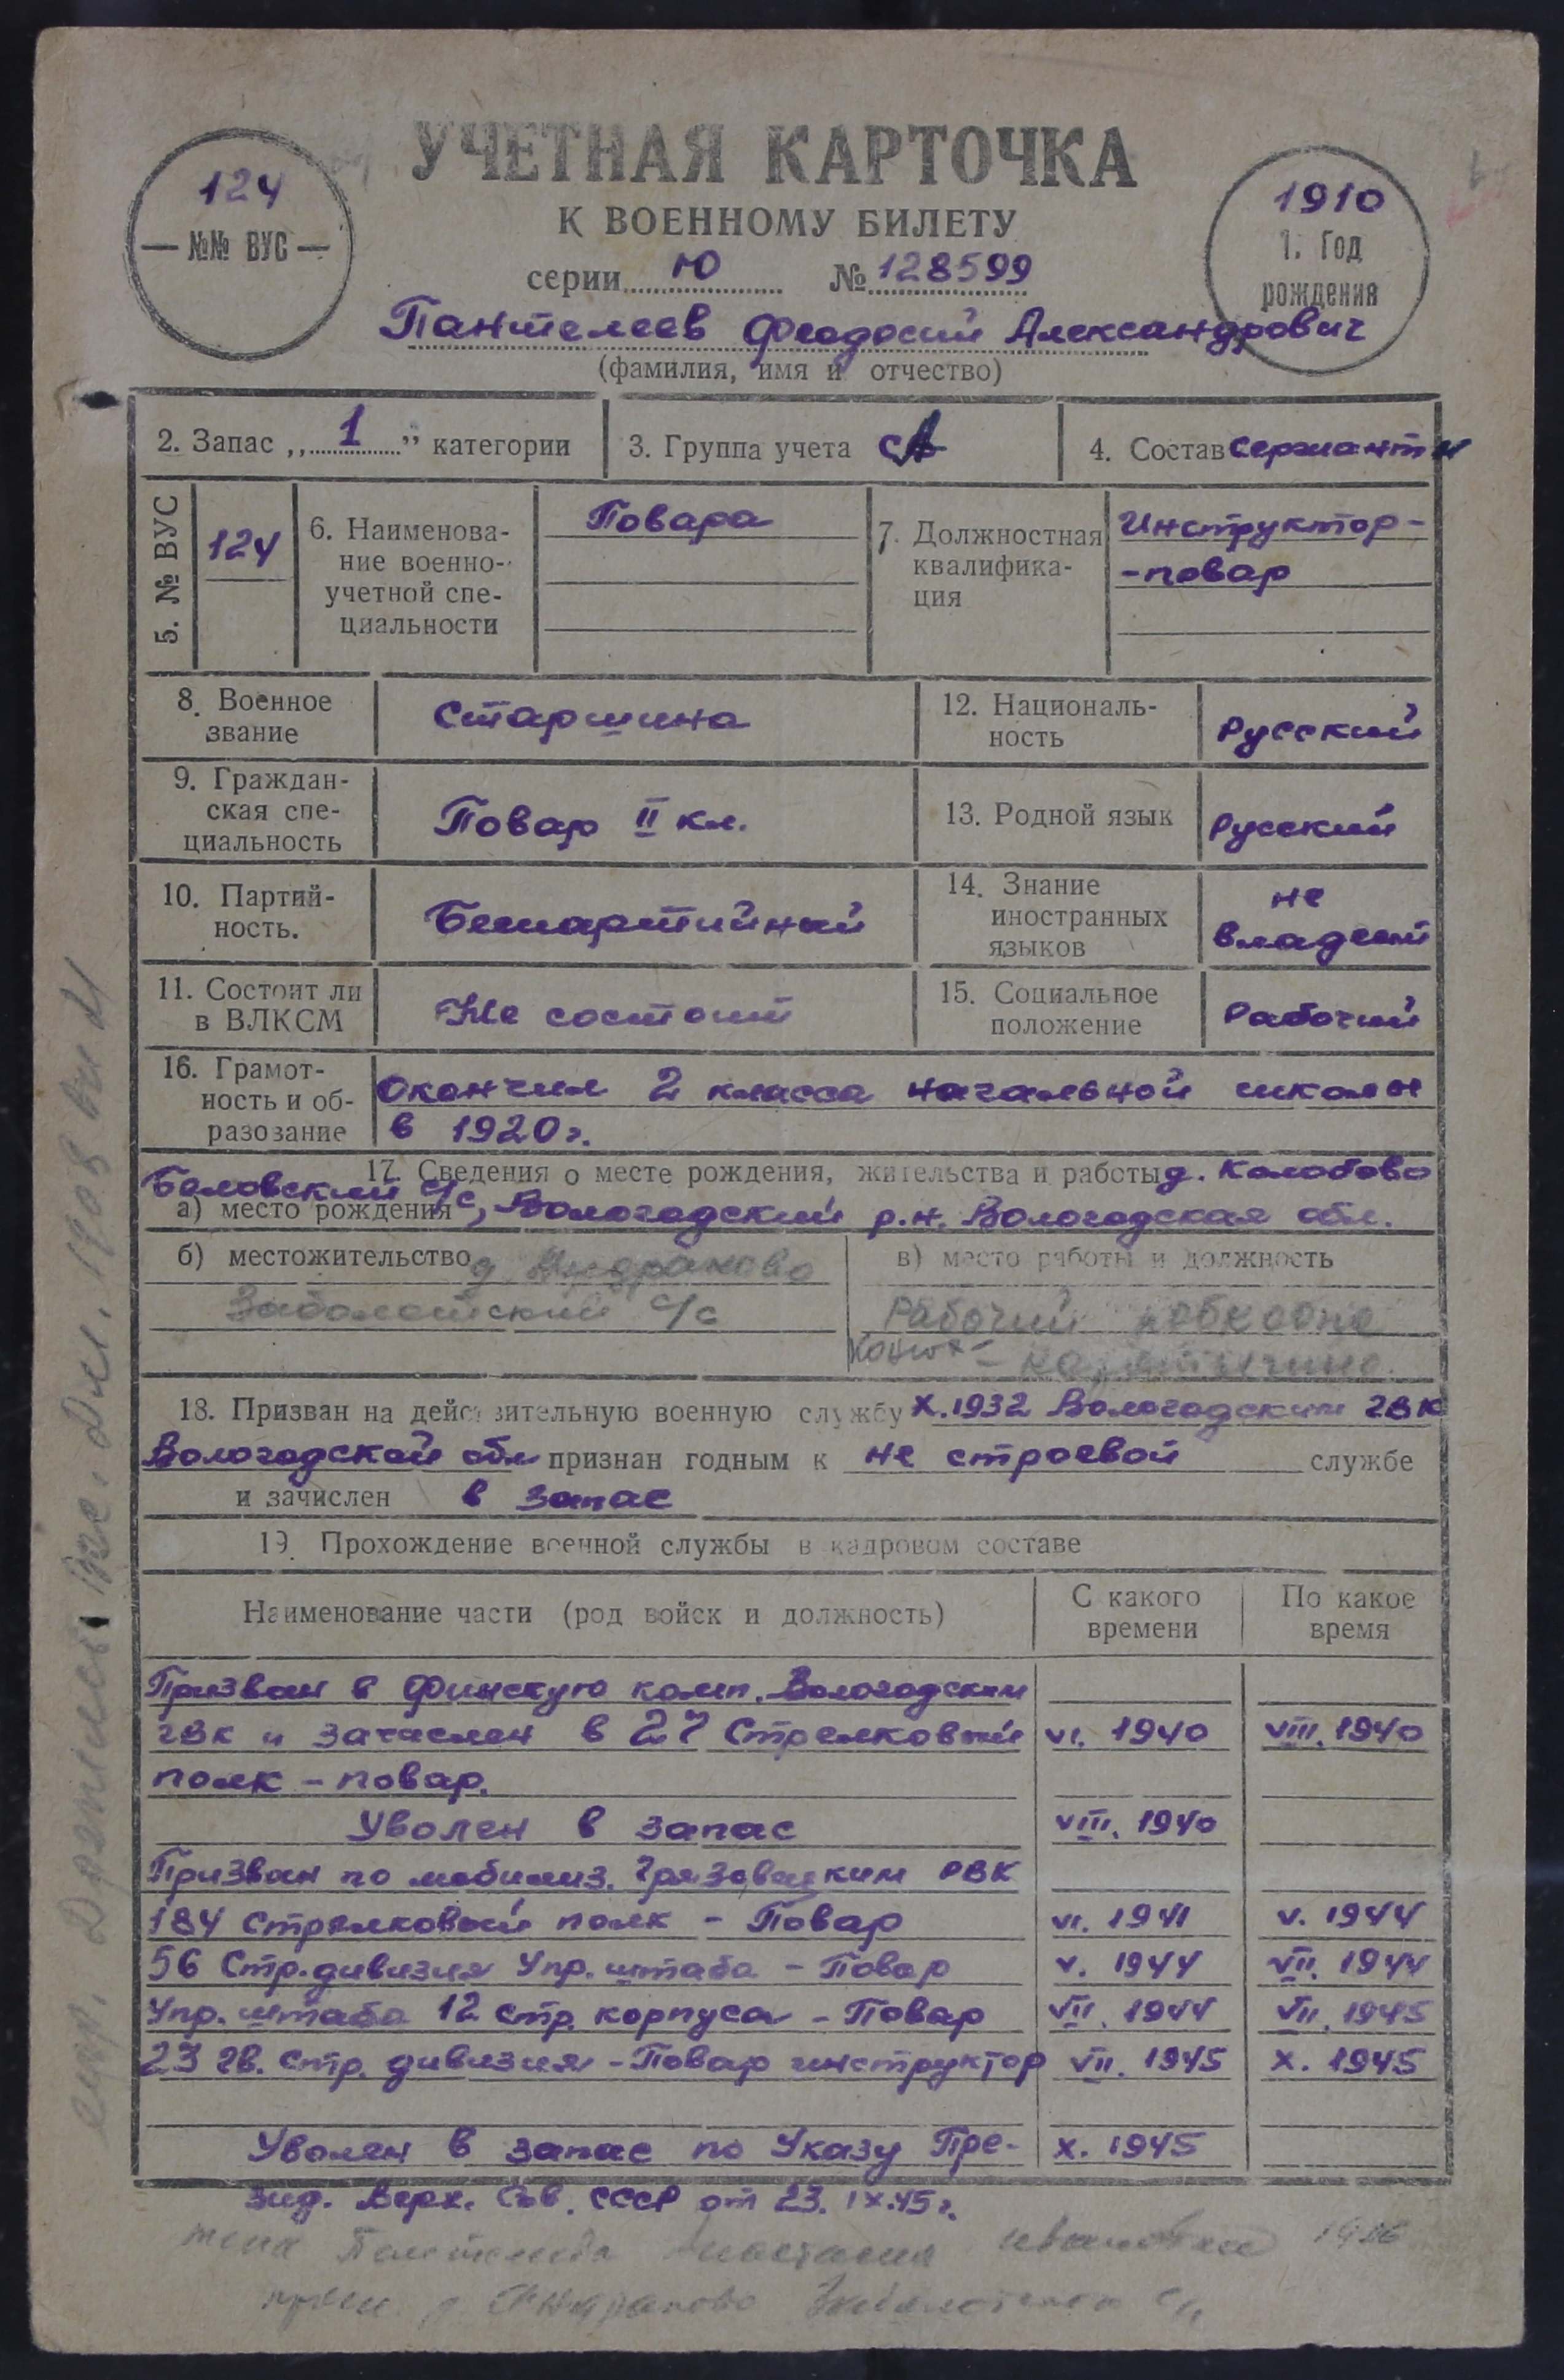 УЧЕТНАЯ КАРТОЧКА
К ВОЕННОМУ БИЛЕТУ
124
— №№ ВУС —
серии Ю № 128599
1910
1. Год
рождения
Пантелеев Феодосий Александрович
(фамилия, имя и отчество)
2. Запас „ 1 ” категории
3. Группа учета СА
4. Состав сержанты
5. № ВУС
124
6. Наименова-
ние военно-
учетной спе-
циальности
Повара
7. Должностная
квалифика-
ция
Инструктор-
-повар
8. Военное
звание
Старшина
12. Националь-
ность
Русский
9. Граждан-
ская спе-
циальность
Повар II кл.
13. Родной язык
Русский
10. Партий-
ность.
Беспартийный
14. Знание
иностранных
языков
не
владеет
11. Состоит ли
в ВЛКСМ
Не состоит
15. Социальное
положение
Рабочий
16. Грамот-
ность и об-
разование
Окончил 2 класса начальной школы
в 1920 г.
17. Сведения о месте рождения, жительства и работы д. Колобово
Беловский с/с, Вологодский р.н. Вологодская обл.
а) место рождения
б) местожительство д.
Заболотский с/с
в) место работы и должность
Рабочий
18. Призван на действительную военную службу X.1932 Вологодским ГВК
Вологодской обл признан годным к не строевой службе
и зачислен в запас
19. Прохождение военной службы в кадровом составе
Наименование части (род войск и должность)
С какого
времени
По какое
время
Призван в Финскую комп. Вологодским
ГВК и зачислен в 27 Стрелковый VI. 1940 VIII. 1940
полк - повар.
Уволен в запас VIII. 1940
Призван по мобилиз. Грязовецким РВК
184 Стрелковый полк - Повар VI. 1941 V. 1944
56 Стр. дивизия Упр. штаба - Повар V. 1944 VII. 1944
Упр. штаба 12 Стр. корпуса - Повар VII. 1944 VII. 1945
23 гв. Стр. дивизия - Повар инструктор VII. 1945 X. 1945
Уволен в запас по Указу Пре- X. 1945
зид. Верх. Сов. СССР от 23. IX.45 г.
жена Анастасия Ивановна